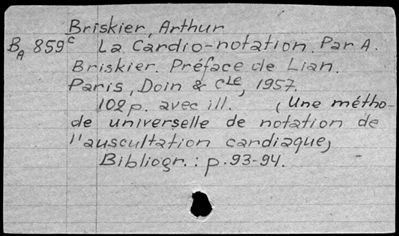 Briskier, Arthur
BA 859c La Cardio-notation. Par A.
Briskier. Préface de Lian.
Paris, Doin & Cie, 1957.
102p. avec ill. (Une métho-
de universelle de notation de
l'auscultation cardiaque)
Bibliogr.: p.93-94.